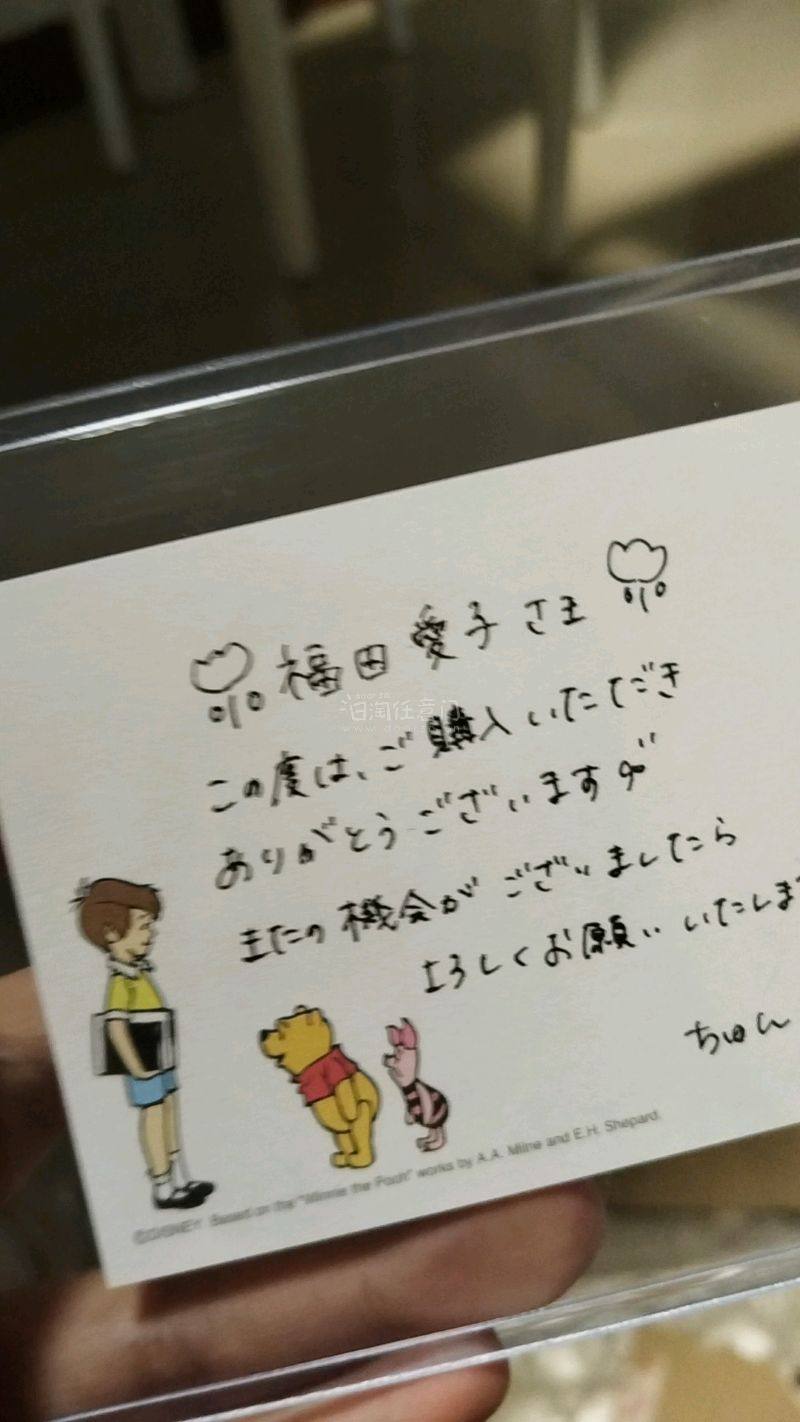 福田愛子さま
この度は、ご購入いただき
ありがとうございます
またの機会がございましたら
よろしくお願いいたします
ちゅん
©DISNEY Based on the "Winnie the Pooh" works by A.A. Milne and E.H. Shepard.
日淘任意门